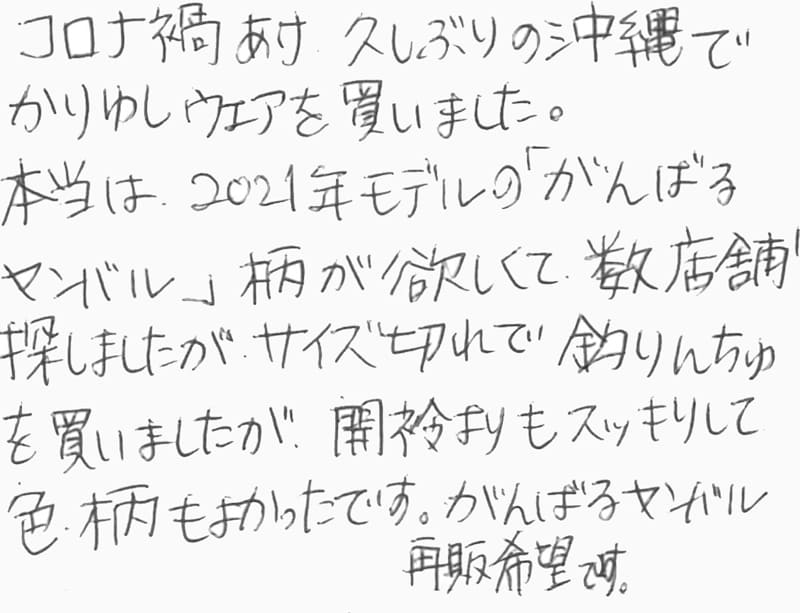 コロナ禍あけ 久しぶりの沖縄で
かりゆしウェアを買いました。
本当は、2021年モデルの「がんばる
ヤンバル」柄が欲しくて、数店舗
探しましたが、サイズ切れで 釣りんちゅ
を買いましたが、開衿よりもスッキリして
色、柄もよかったです。がんばるヤンバル
再販希望です。